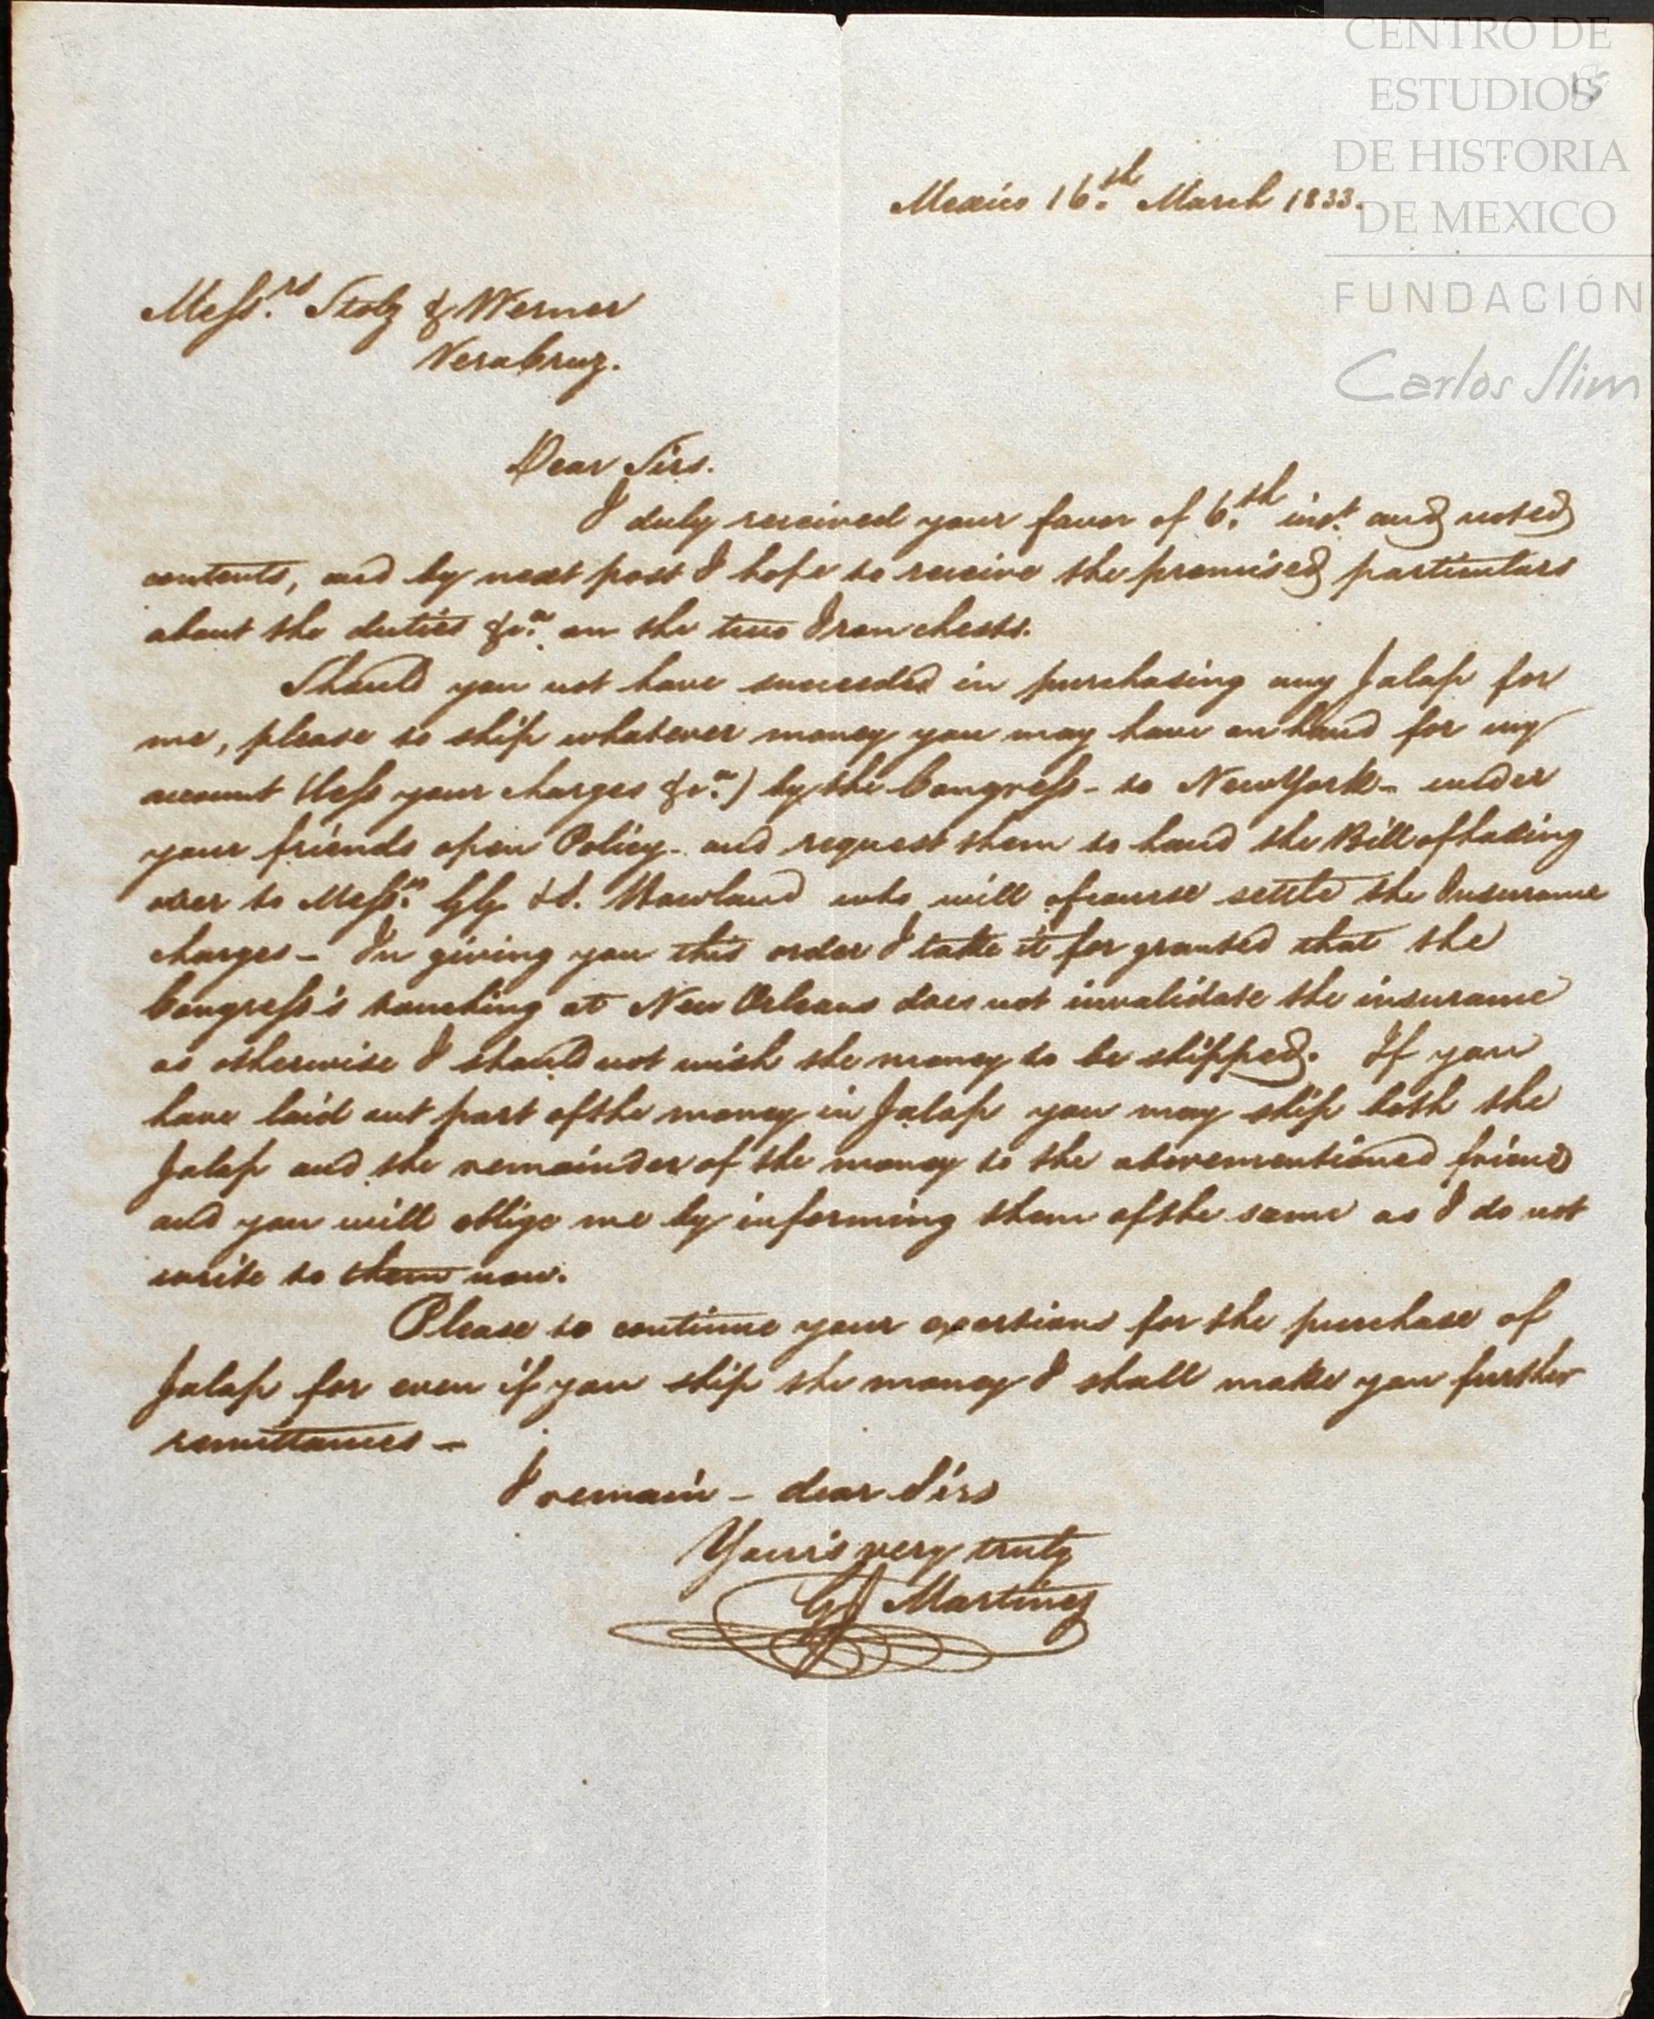 CENTRO DE
ESTUDIOS
DE HISTORIA
DE MEXICO
FUNDACIÓN
Carlos Slim
15
Mexico 16.th March 1833.
Mess.rs Stolz & Werner
Vera Cruz.
Dear Sirs.
I duly received your favor of 6.th inst. and noted
contents, and by next post I hope to receive the promised particulars
about the duties &c.a on the two Iron chests.
Should you not have succeeded in purchasing any Jalap for
me, please to ship whatever money you may have on hand for my
account (less your charges &c.a) by the Congress - to New York - under
your friends open Policy - and request them to hand the Bill of lading
over to Mess.rs G G & S. Howland who will of course settle the Insurance
charges - In giving you this order I take it for granted that the
Congress's touching at New Orleans does not invalidate the insurance
as otherwise I should not wish the money to be shipped. If you
have laid out part of the money in Jalap you may ship both the
Jalap and the remainder of the money to the abovementioned friend
and you will oblige me by informing them of the same as I do not
write to them now.
Please to continue your exertions for the purchase of
Jalap for even if you ship the money I shall make you further
remittances -
I remain - dear Sirs
Your's very truly
Martinez